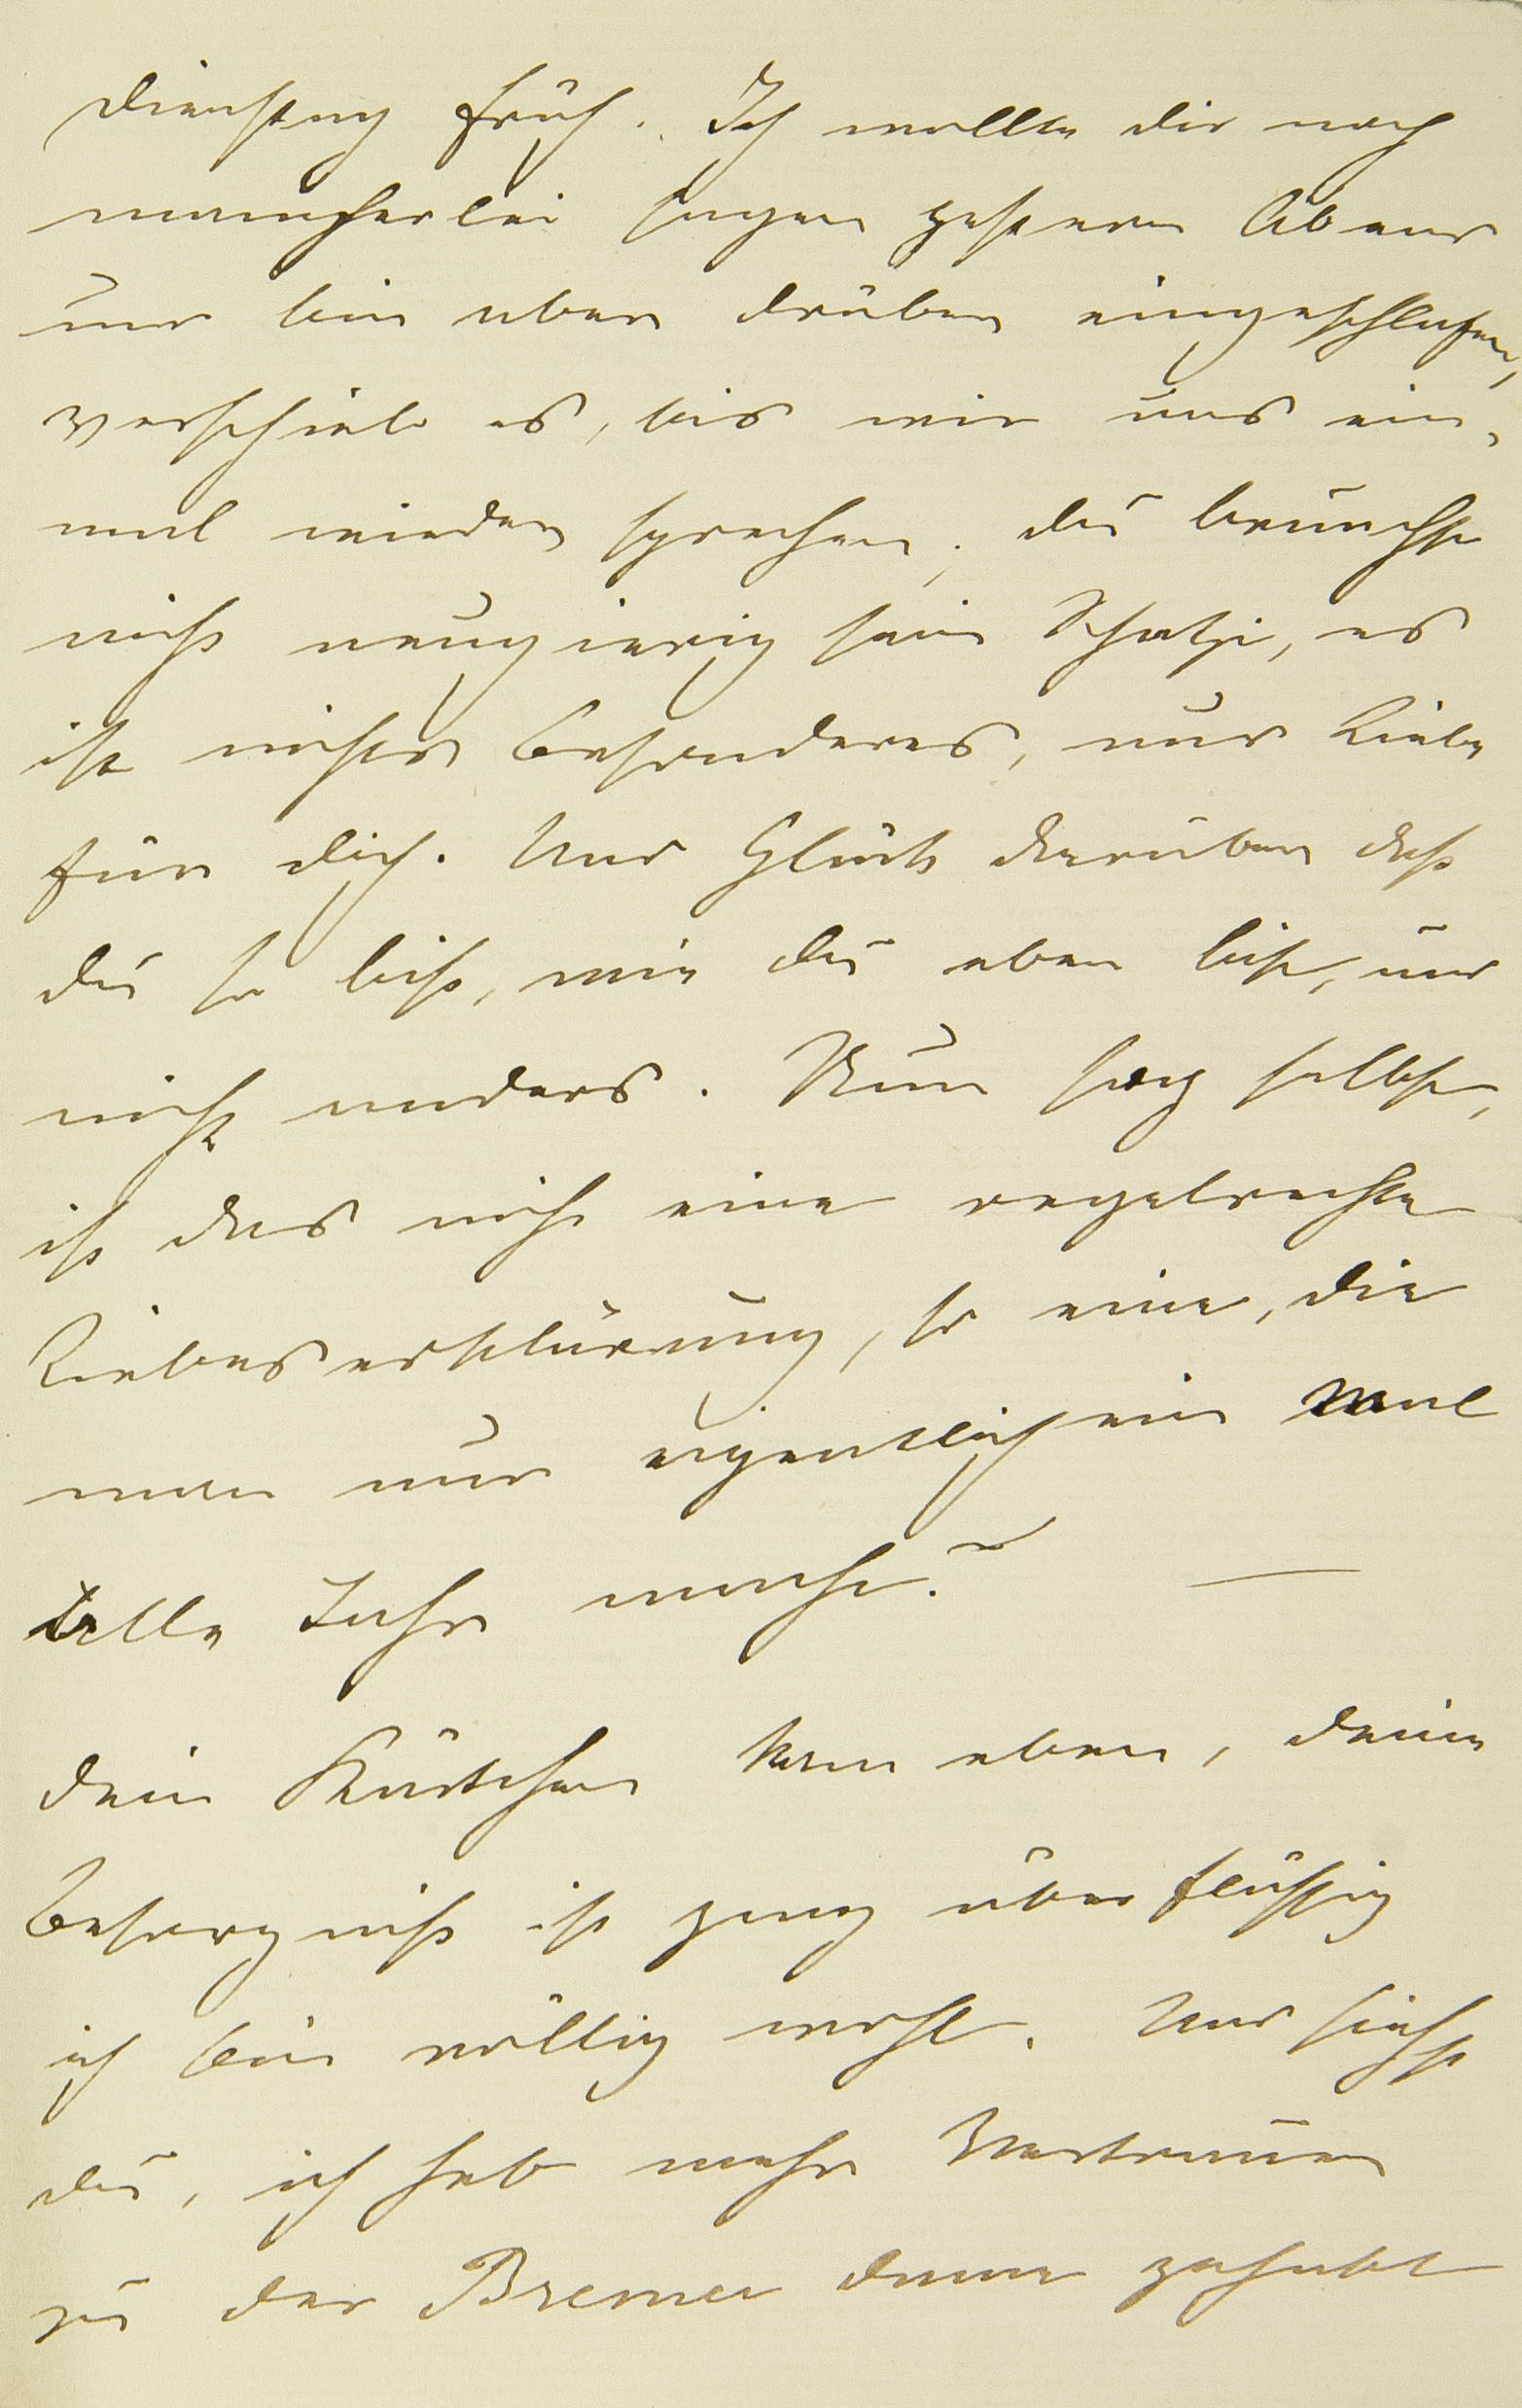 Dienstag früh. Ich wollte dir noch
mancherlei sagen gestern Abend
und bin aber drüber eingeschlafen,
verschieb es, bis wir uns ein-
mal wieder sprechen; du brauchst
nicht neugierig sein Schatzi, es
ist nichts besonderes, nur Liebe
für dich. Und Glück darüber daß
du so bist, wie du eben bist, und
nicht anders. Nun sag selbst,
ist das nicht eine regelrechte
Liebeserklärung, so eine, die
man nur eigentlich ein mal
alle Jahr macht? —
Dein Kärtchen kam eben, deine
Besorgniß ist ganz überflüssig
ich bin völlig wohl. Und siehst
du, ich hab mehr Vertrauen
zu der Bremer denn gehabt